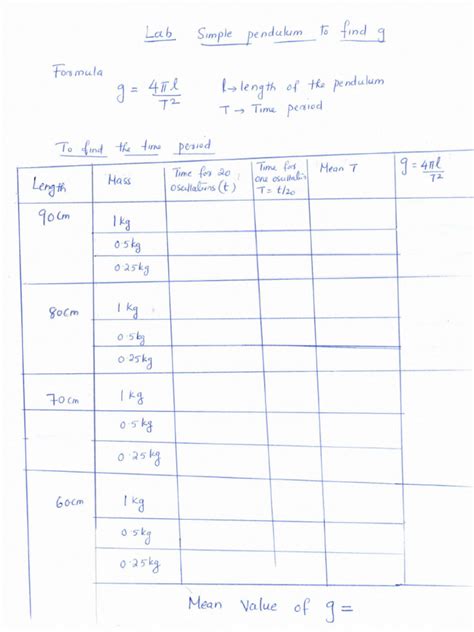 Lab Simple pendulum to find g
Formula
g = 4πl/T² l → length of the pendulum
T → Time period
To find the time period
Length Mass Time for 20 oscillations (t) Time for one oscillation T = t/20 Mean T g = 4πl/T²
90cm 1kg
0.5kg
0.25kg
80cm 1kg
0.5kg
0.25kg
70cm 1kg
0.5kg
0.25kg
60cm 1kg
0.5kg
0.25kg
Mean Value of g =